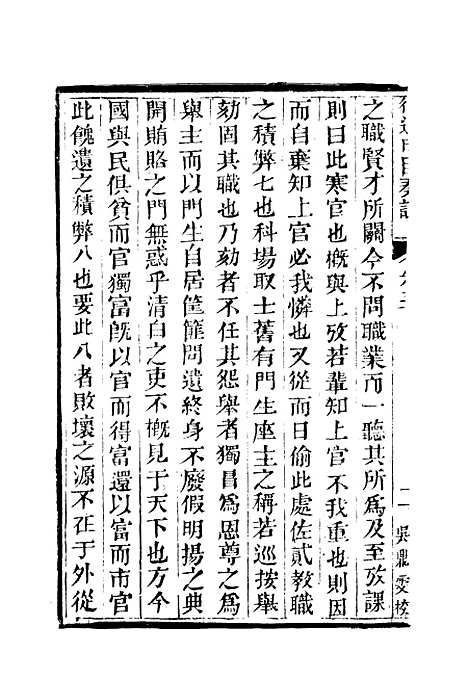 之職賢才所關今不問職業而一聽其所為及至攷課
則曰此寒官也槪與上攷若輩知上官不我重也則因
而自棄知上官必我憐也又從而日偷此處佐貳教職
之積弊七也科場取士舊有門生座主之稱若巡按舉
劾固其職也乃劾者不任其怨舉者獨冒為恩尊之為
舉主而以門生自居筐篚問遺終身不廢假明揚之典
開賄賂之門無惑乎清白之吏不槪見于天下也方今
國與民俱貧而官獨富旣以官而得富還以富而市官
此餽遺之積弊八也要此八者敗壞之源不在于外從
吳鼎雯校